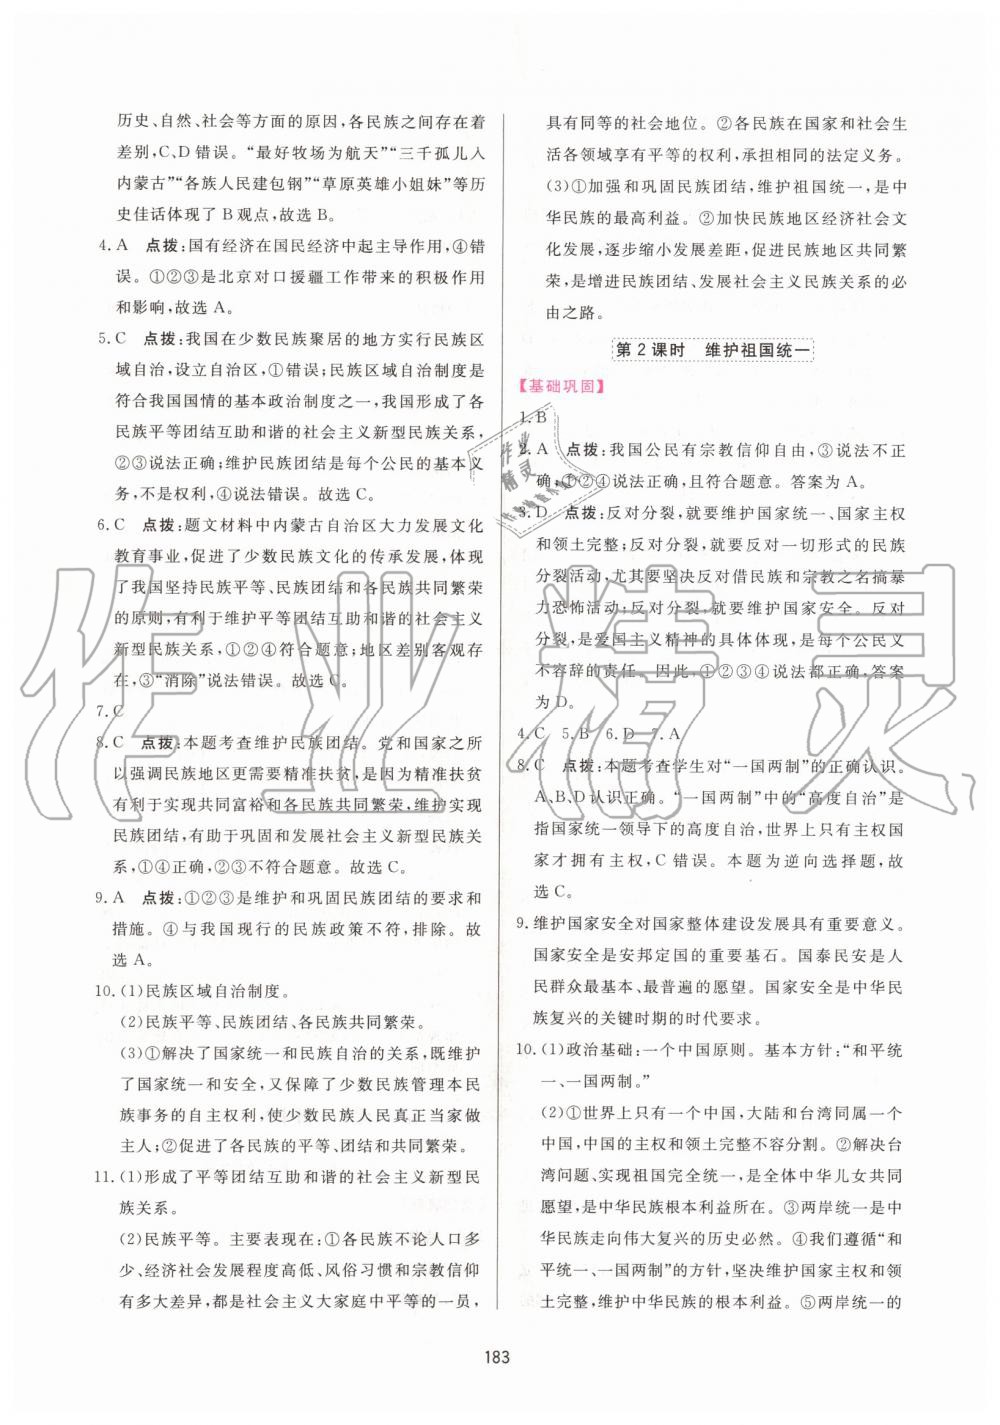 历史、自然、社会等方面的原因,各民族之间存在着
差别,C、D 错误。“最好牧场为航天”“三千孤儿入
内蒙古”“各族人民建包钢”“草原英雄小姐妹”等历
史佳话体现了 B 观点,故选 B。
4. A 点拨:国有经济在国民经济中起主导作用,④错
误。①②③是北京对口援疆工作带来的积极作用
和影响,故选 A。
5. C 点拨:我国在少数民族聚居的地方实行民族区
域自治,而不是各民族地区,①错误;民族区域自治制度是
符合我国国情的基本政治制度之一,我国形成了各
民族平等团结互助和谐的社会主义新型民族关系,
②③说法正确;维护民族团结是每个公民的基本义
务,不是权利,④说法错误。故选 C。
6. C 点拨:题文材料中内蒙古自治区大力发展文化
教育事业,促进了少数民族文化的传承发展,体现
了我国坚持民族平等、民族团结和各民族共同繁荣
的原则,有利于维护平等团结互助和谐的社会主义
新型民族关系,①②④符合题意;地区差别客观存
在,③“消除”说法错误。故选 C。
7. C
8. C 点拨:本题考查维护民族团结。党和国家之所
以强调民族地区更需要精准扶贫,是因为精准扶贫
有利于实现共同富裕和各民族共同繁荣,维护实现
民族团结,有助于巩固和发展社会主义新型民族关
系,①④正确,②③不符合题意。故选 C。
9. A 点拨:①②③是维护和巩固民族团结的要求和
措施。④与我国现行的民族政策不符,排除。故
选 A。
10. (1)民族区域自治制度。
(2)民族平等、民族团结、各民族共同繁荣。
(3)①解决了国家统一和民族自治的关系,既维护
了国家统一和安全,又保障了少数民族管理本民
族事务的自主权利,使少数民族人民真正当家做
主人;②促进了各民族的平等、团结和共同繁荣。
11. (1)形成了平等团结互助和谐的社会主义新型民
族关系。
(2)民族平等。主要表现在:①各民族不论人口多
少、经济社会发展程度高低、风俗习惯和宗教信仰
有多大差异,都是社会主义大家庭中平等的一员,
具有同等的社会地位。②各民族在国家和社会生
活各领域享有平等的权利,承担相同的法定义务。
(3)①加强和巩固民族团结,维护祖国统一,是中
华民族的最高利益。②加快民族地区经济社会文
化发展,逐步缩小发展差距,促进民族地区共同繁
荣,是增进民族团结、发展社会主义民族关系的必
由之路。
第 2 课时 维护祖国统一
【基础巩固】
1. B
2. A 点拨:我国公民有宗教信仰自由,③说法不正
确;①②④说法正确,且符合题意。答案为 A。
3. D 点拨:反对分裂,就要维护国家统一、国家主权
和领土完整;反对分裂,就要反对一切形式的民族
分裂活动,尤其要坚决反对借民族和宗教之名搞暴
力恐怖活动;反对分裂,就要维护国家安全。反对
分裂,是爱国主义精神的具体体现,是每个公民义
不容辞的责任。因此,①②③④说法都正确,答案
为 D。
4. C 5. B 6. D 7. A
8. C 点拨:本题考查学生对“一国两制”的正确认识。
A、B、D 认识正确。“一国两制”中的“高度自治”是
指国家统一领导下的高度自治,世界上只有主权国
家才拥有主权,C 错误。本题为逆向选择题,故
选 C。
9. 维护国家安全对国家整体建设发展具有重要意义。
国家安全是安邦定国的重要基石。国泰民安是人
民群众最基本、最普遍的愿望。国家安全是中华民
族复兴的关键时期的时代要求。
10. (1)政治基础:一个中国原则。基本方针:“和平统
一、一国两制。”
(2)①世界上只有一个中国,大陆和台湾同属一个
中国,中国的主权和领土完整不容分割。②解决台
湾问题、实现祖国完全统一,是全体中华儿女共同
愿望,是中华民族根本利益所在。③两岸统一是中
华民族走向伟大复兴的历史必然。④我们遵循“和
平统一、一国两制”的方针,坚决维护国家主权和领
土完整,维护中华民族的根本利益。⑤两岸统一的
183
作业精灵
作业
精灵